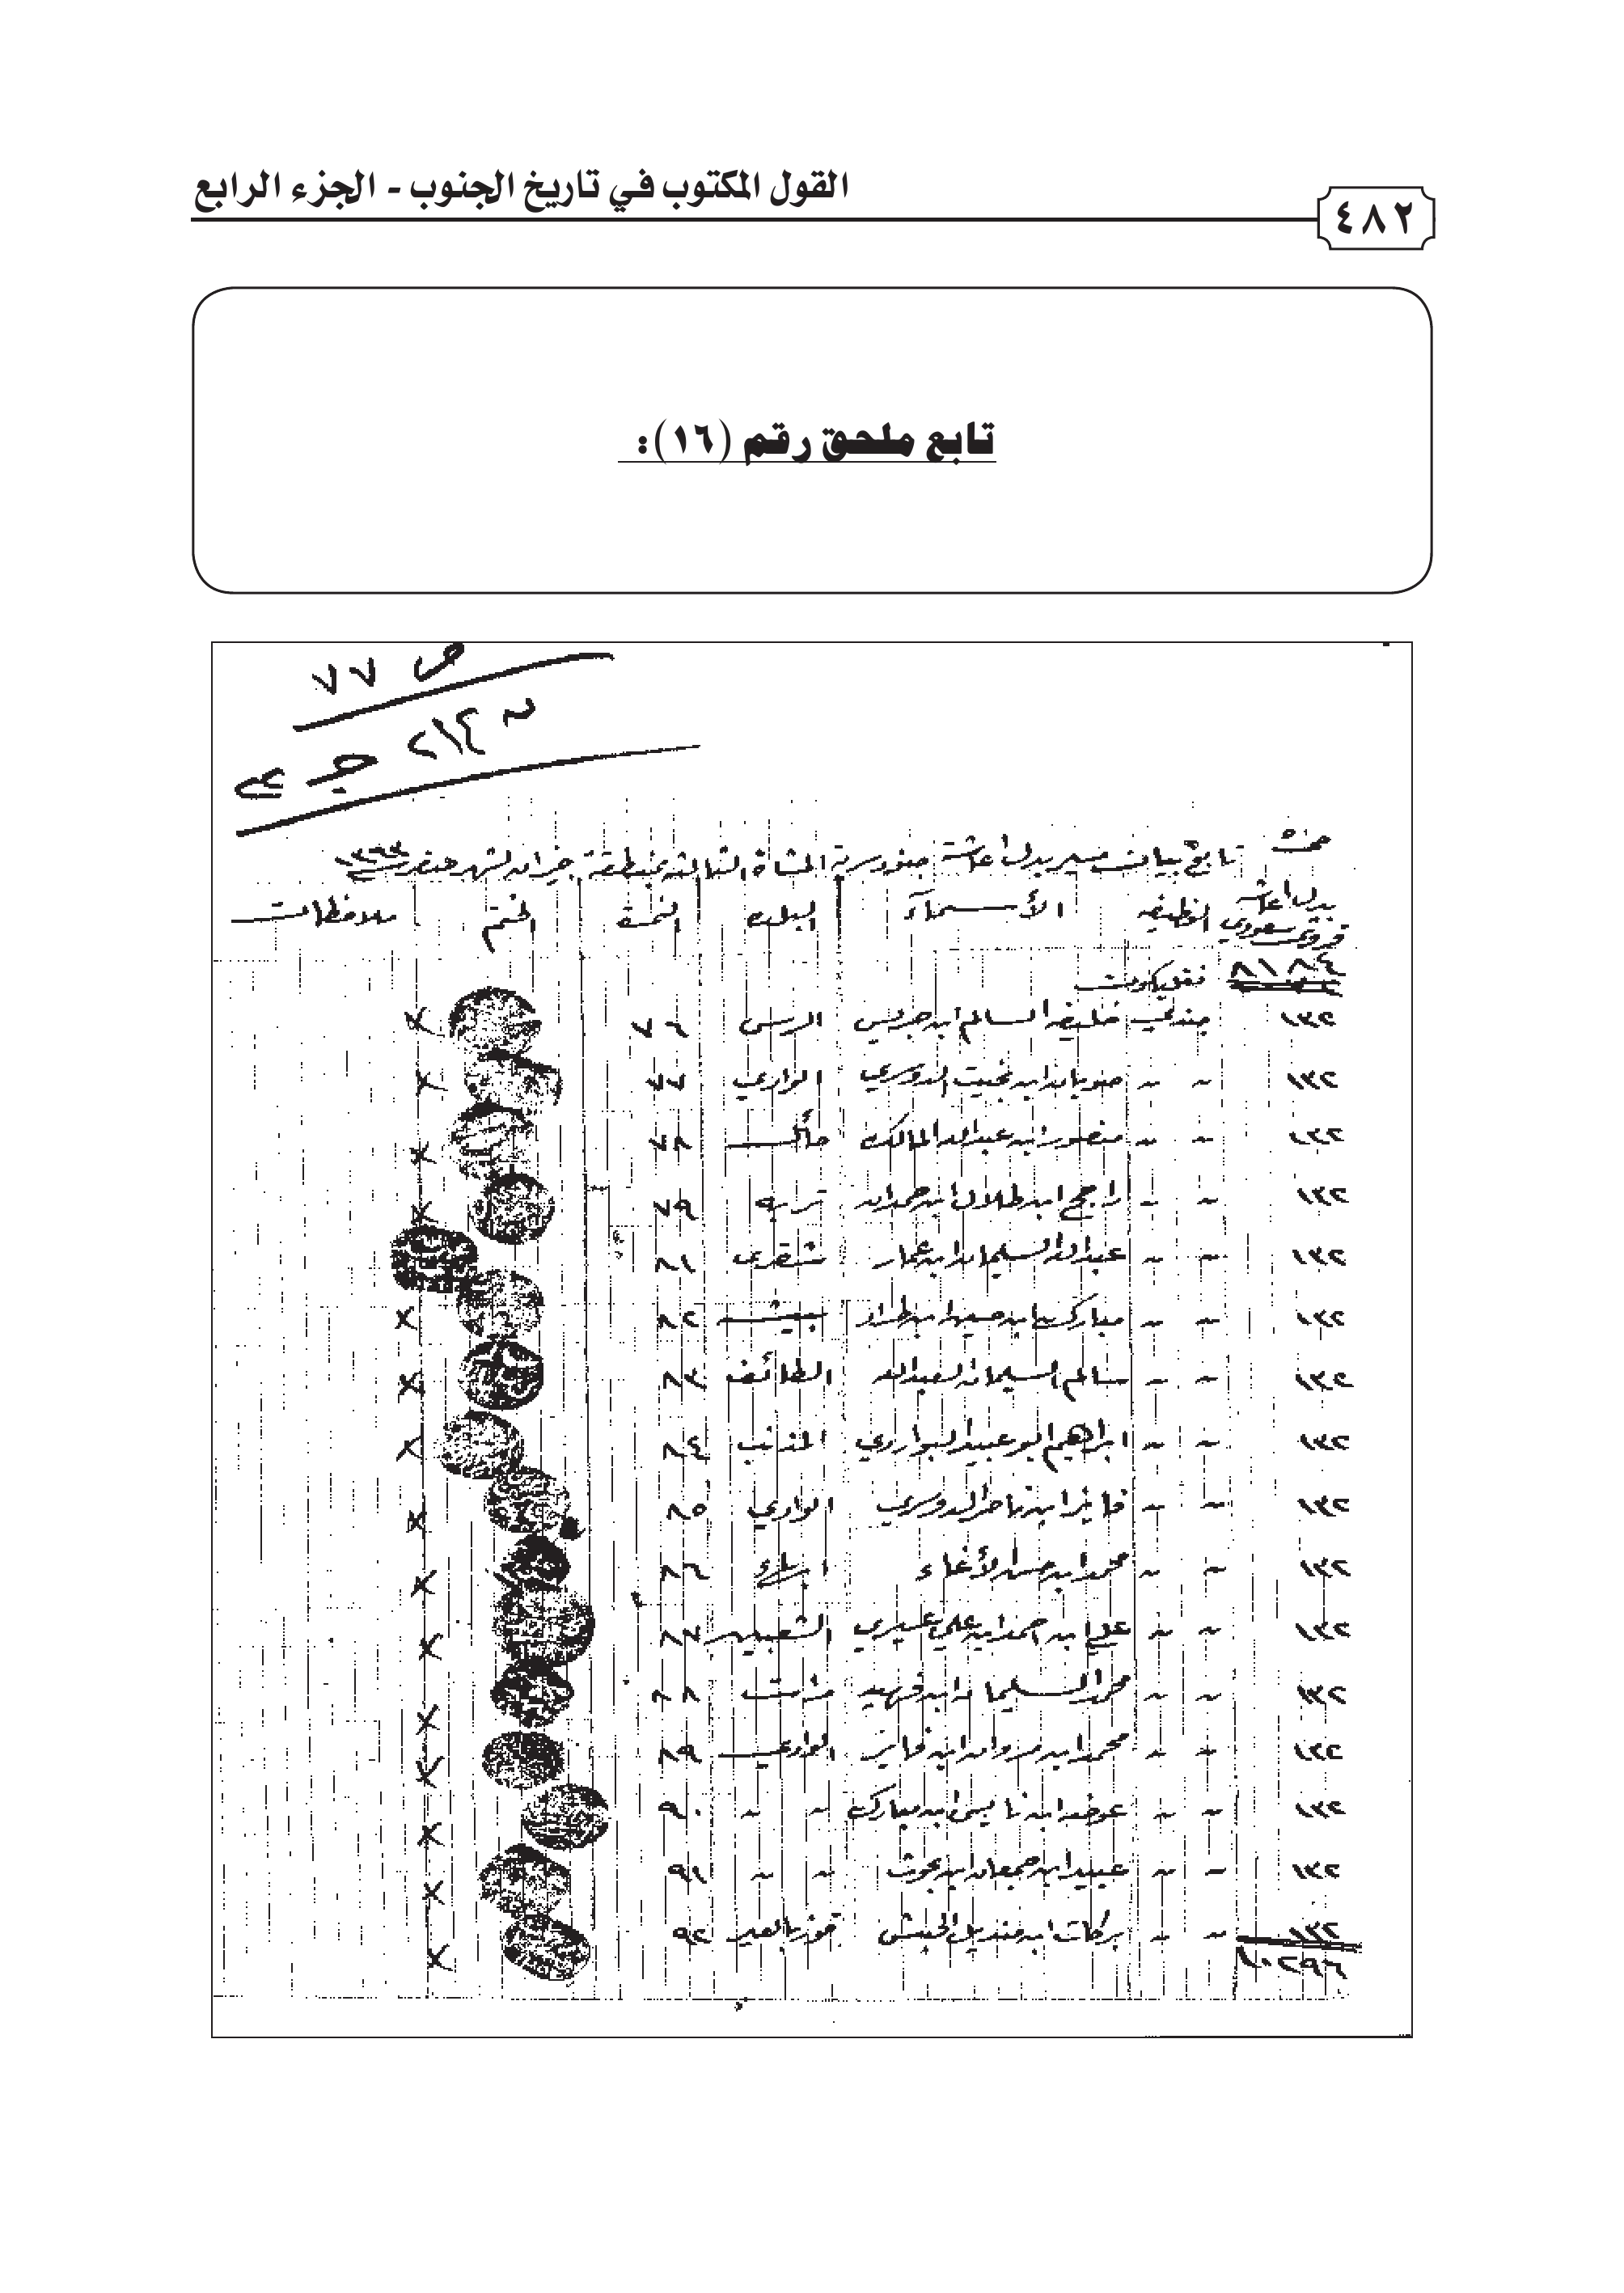 القول المكتوب في تاريخ الجنوب - الجزء الرابع
٤٨٢
تابع ملحق رقم (١٦):
ص ٧٧
جـ ٤
تابع بيان مسير بدل اعاشة جنود سرية المشاة الثالثة بمنطقة جيزان لشهر صفر ١٣٦٣
بدل اعاشة الوظيفه الأسماء البلده النمرة الختم ملاحظات
قروش سعودي
٨١٨٤
١٣٢ جندي خليفه السالم ابن جريس الرس ٧٦ ×
١٣٢ " " ابن بخيت الدوسري الوادي ٧٧ ×
١٣٢ " " منصور ابن عبدالله المالك حائل ٧٨ ×
١٣٢ " " راجح ابن طلال ابن حمدان تربه ٧٩ ×
١٣٢ " " عبدالله السليمان ابن عمار شقرى ٨١
١٣٢ " " مبارك ابن بيشه ٨٢ ×
١٣٢ " " سالم السليمان العبدالله الطائف ٨٣ ×
١٣٢ " " ابراهيم المذنب ٨٤ ×
١٣٢ " " فايز ابن ناصر الدوسري الوادي ٨٥ ×
١٣٢ " " محمد ابن حسن ٨٦ ×
١٣٢ " " علي ابن احمد ابن علي عسيري الشعبين ٨٧ ×
١٣٢ " " السليمان ابن فهيد رامت ٨٨ ×
١٣٢ " " محمد ابن مروان ابن فايز الوادي ٨٩ ×
١٣٢ " " عوضه ابن ابن مبارك " " ٩٠ ×
١٣٢ " " عبيد ابن جمعان ابن " " ٩١ ×
١٣٢ " " بركات ابن منديل الحبشي قوز بالعير ٩٢ ×
١٠٢٩٦